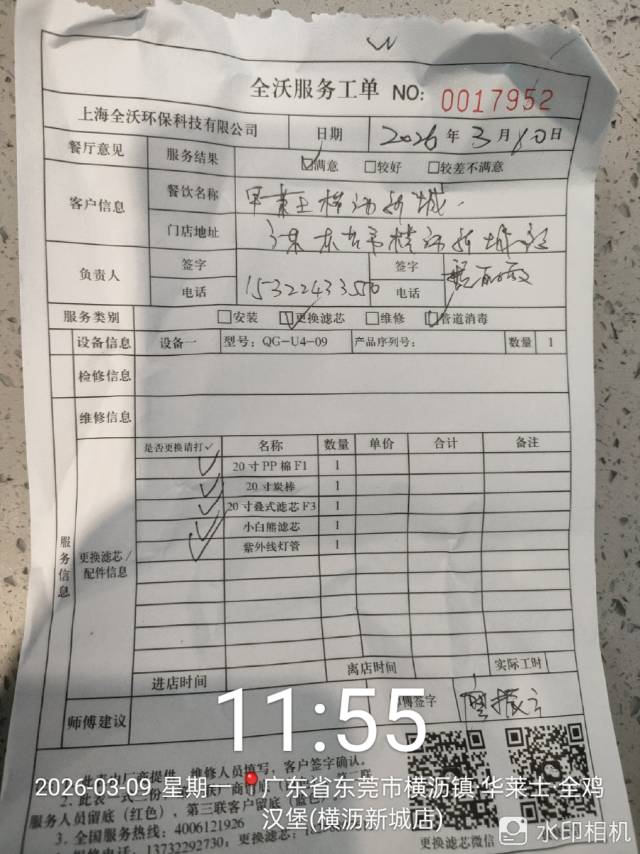 全沃服务工单 NO: 0017952
上海全沃环保科技有限公司 日期 2026年3月10日
餐厅意见 服务结果 ☑满意 □较好 □较差不满意
客户信息 餐饮名称 华莱士横沥新城
门店地址
负责人 签字 签字
电话 15322433550 电话
服务类别 □安装 ☑更换滤芯 □维修 ☑管道消毒
设备信息 设备一 型号: QG-U4-09 产品序列号: 数量 1
检修信息
维修信息
服务信息
更换滤芯/配件信息
是否更换请打✓ 名称 数量 单价 合计 备注
✓ 20寸PP棉F1 1
✓ 20寸炭棒 1
✓ 20寸叠式滤芯F3 1
✓ 小白熊滤芯 1
✓ 紫外线灯管 1
进店时间 离店时间 实际工时
师傅建议 师傅签字
11:55
2026-03-09 星期一 广东省东莞市横沥镇 华莱士·全鸡
汉堡(横沥新城店)
维修人员填写，客户签字确认。
2. 此表一式三份
服务人员留底（红色），第三联客户留底（蓝色）
3. 全国服务热线: 4006121926
13732292730, 更换滤芯:
更换滤芯微信
水印相机